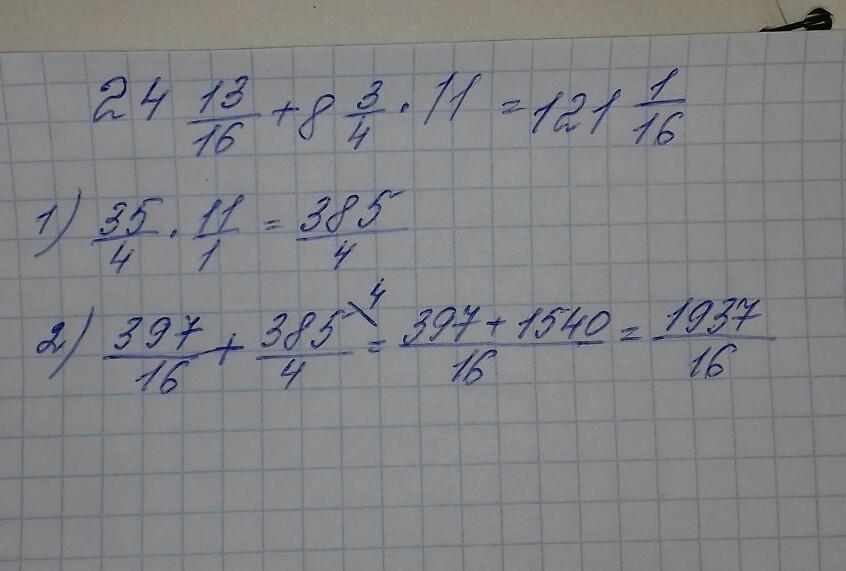 24 13/16 + 8 3/4 · 11 = 121 1/16
1) 35/4 · 11/1 = 385/4
2) 397/16 + 385\4/4 = 397 + 1540/16 = 1937/16